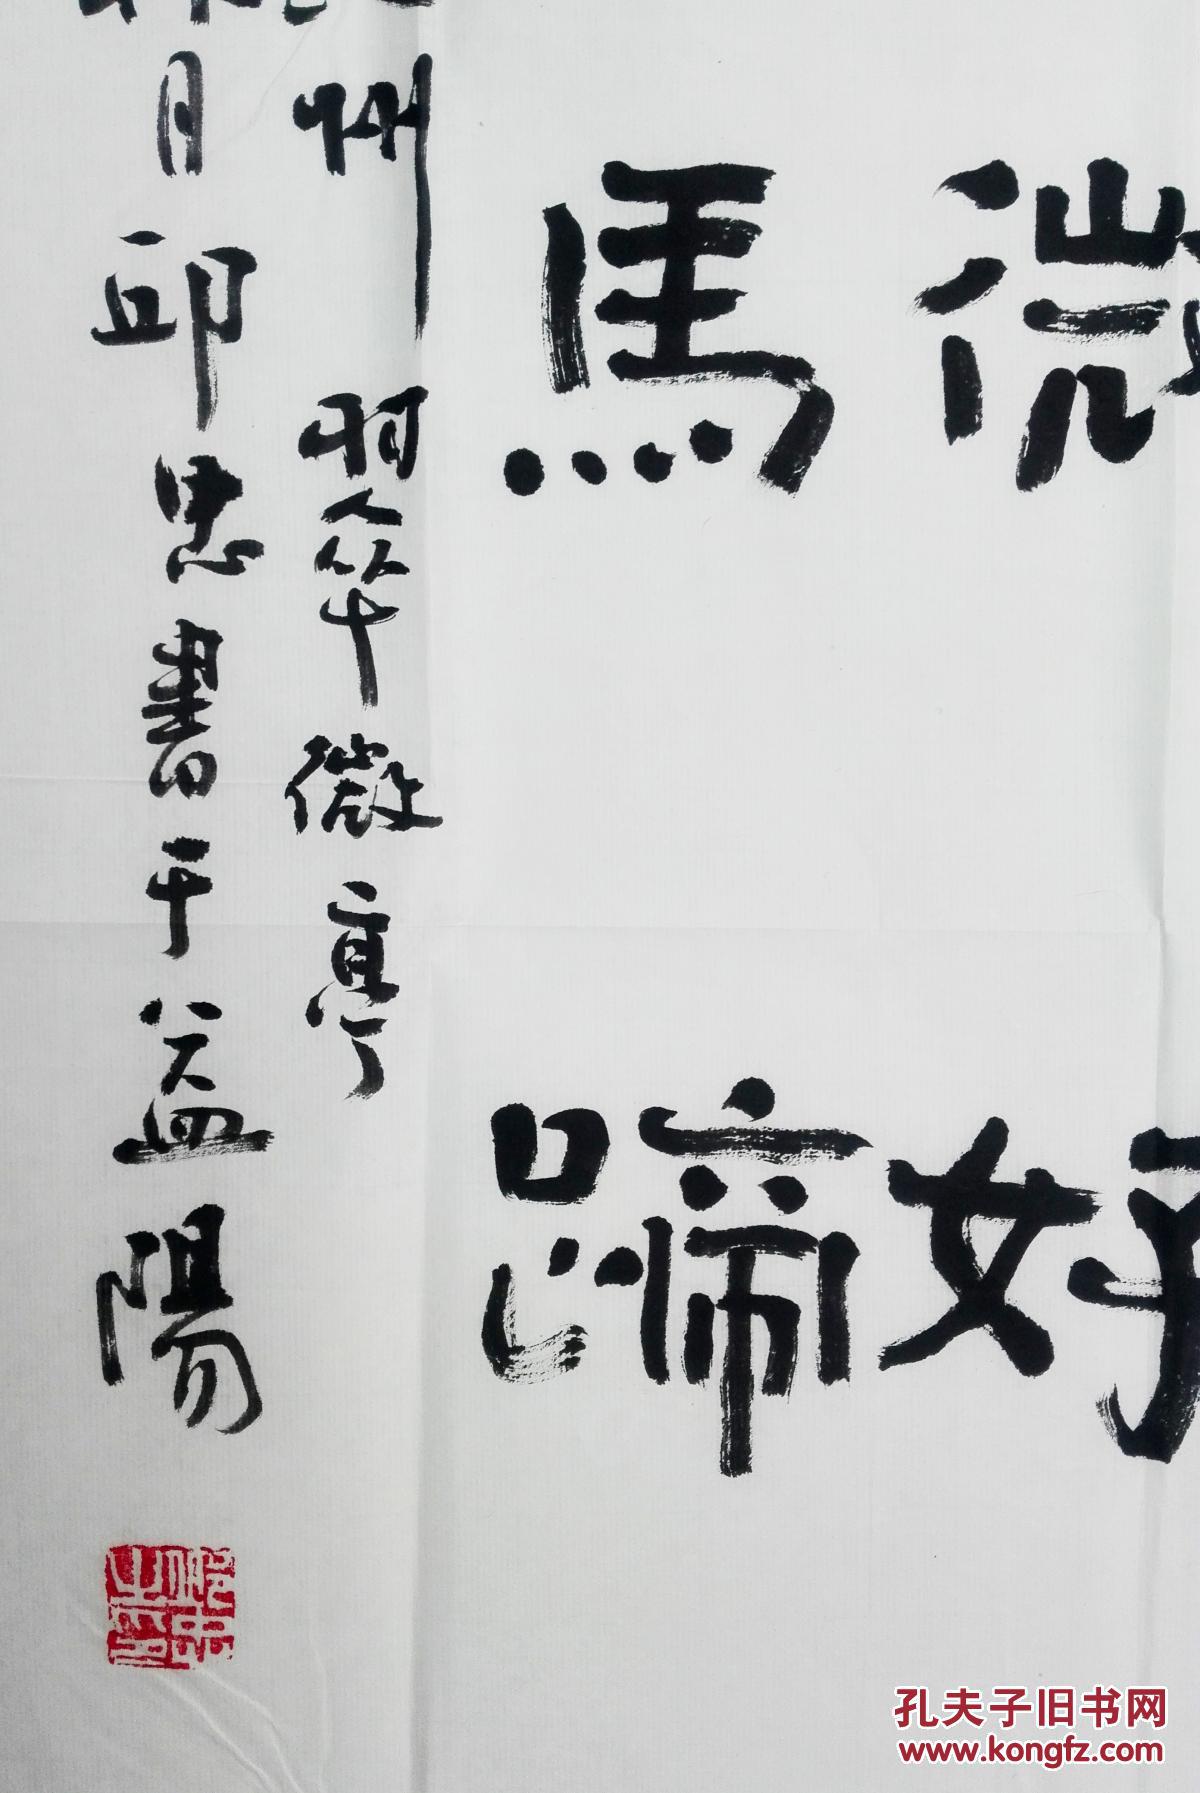 微好
馬蹄
州翠微亭
月邱忠書于益陽
孔夫子旧书网
www.kongfz.com